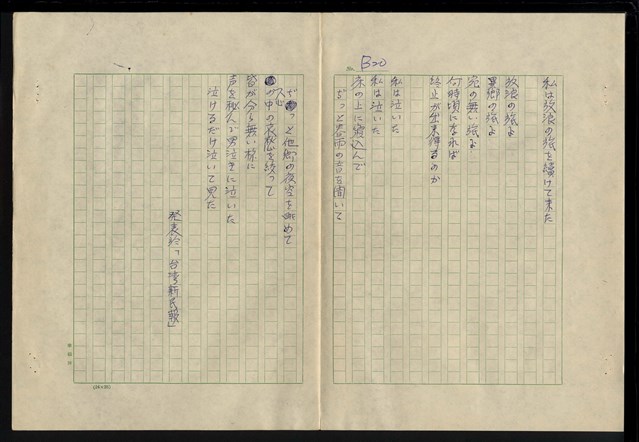 私は放浪の旅を續けて来た
放浪の旅よ
異郷の旅よ
宛の無い旅よ
何時頃になれば
終止が出来得るのか
私は泣いた
私は泣いた
床の上に寝込んで
ぢっと春雨の音を聞いて
ぢっと他郷の夜空を眺めて
心の中の哀愁を絞って
皆が分ら無い様に
声を秘んで男泣きに泣いた
泣けるだけ泣いて見た
発表於「台湾新民報」